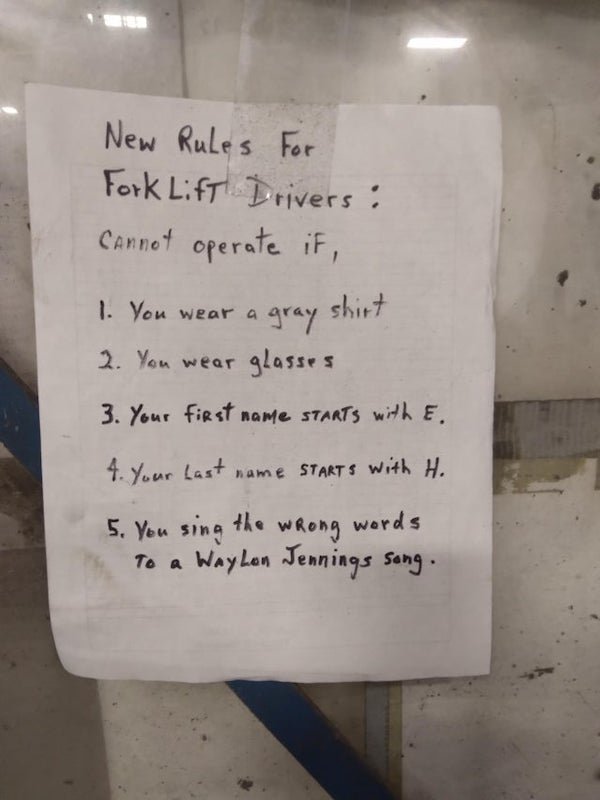 New Rules For
ForkLift Drivers:
Cannot operate if,
1. You wear a gray shirt
2. You wear glasses
3. Your first name STARTS with E.
4. Your Last name STARTS with H.
5. You sing the wrong words
To a WayLon Jennings song.